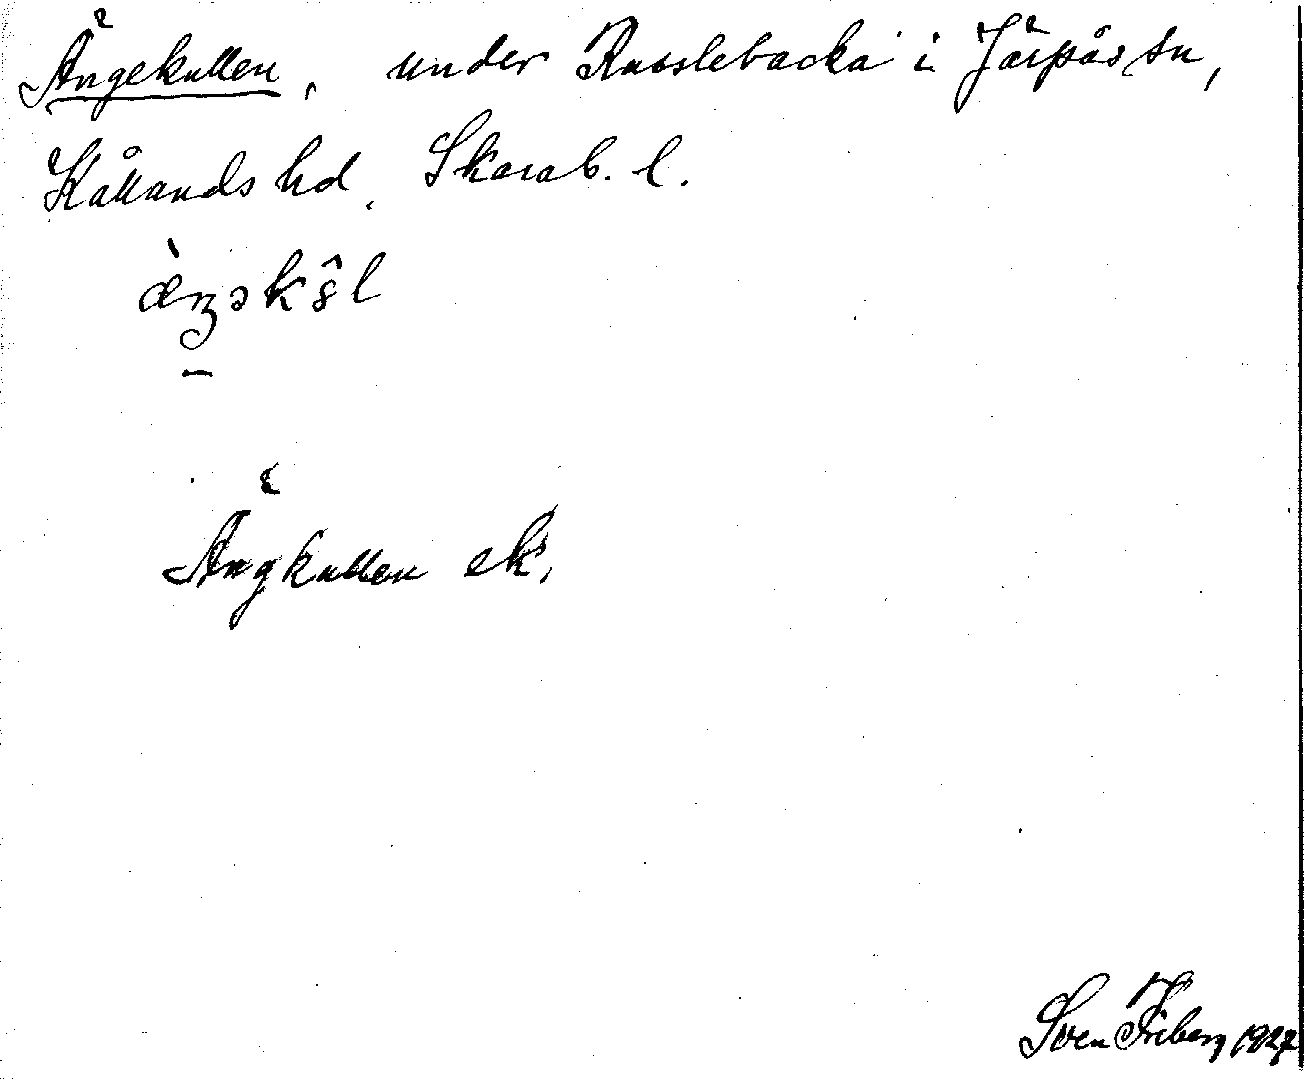 Ängekullen, under Russlebacka i Järpås sn,
Kållands hd. Skarab. l.
Ängkullen ek.
Sven Friberg 1927